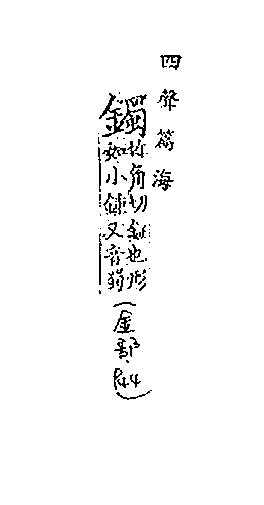 四聲篇海
鐲
竹角切鉦也形
如小鍾又音獨
(金部·P.44)